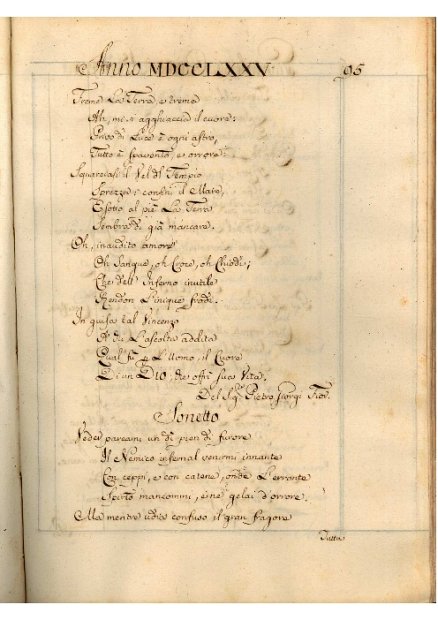 Anno MDCCLXXV. 95
Trema La Terra, e trema
Ah, mi s'agghiaccia il cuore:
Privo di Luce è ogni astro,
Tutto è spavento, e orrore.
Squarciasi il Vel del Tempio
Sprezza i confini il Mare,
E sotto al piè La Terra
Sembra di già mancare.
Oh, inaudito amore
Oh Sangue, oh Croce, oh Chiodi;
Che dell'Inferno inutile
Rendon L'inique frodi.
In guisa tal Vincenzo
A chi L'ascolta addita
Qual fù L'Uomo, il Cuore
Di un DIO, che offrì sua Vita.
Del Sig. Pietro Giorgi
Sonetto
Veder pareami un dì pien di furore
Il Nemico infernal venirmi innante
Con ceppi, e con catene, onde L'errante
Spirto mancommi, e ne gelai d'orrore.
Ma mentre udite confuso il gran fragore
Tutta